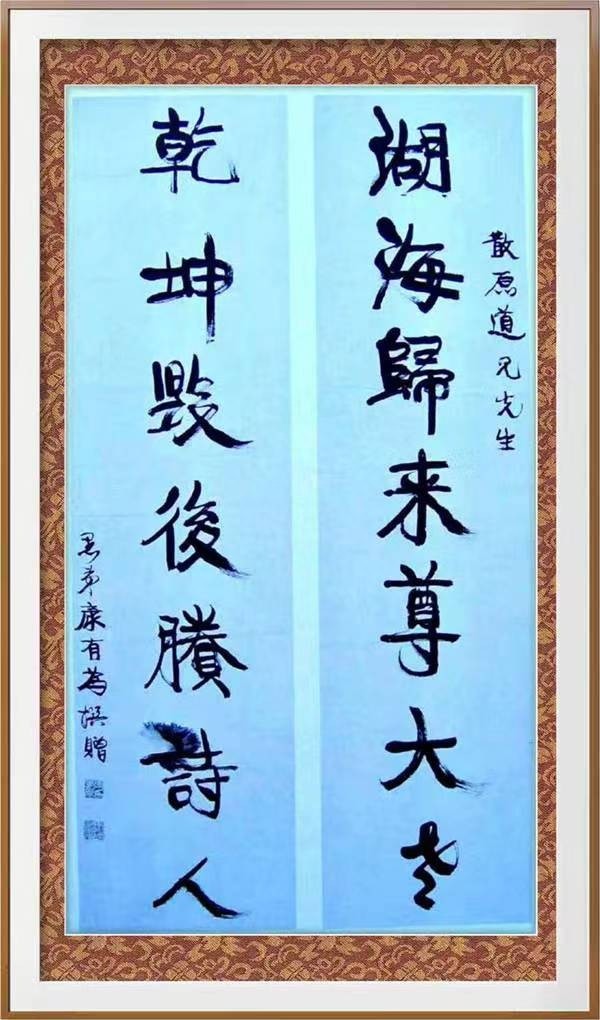 散原道兄先生
湖海歸来尊大老
乾坤毀後賸詩人
愚弟康有為撰贈